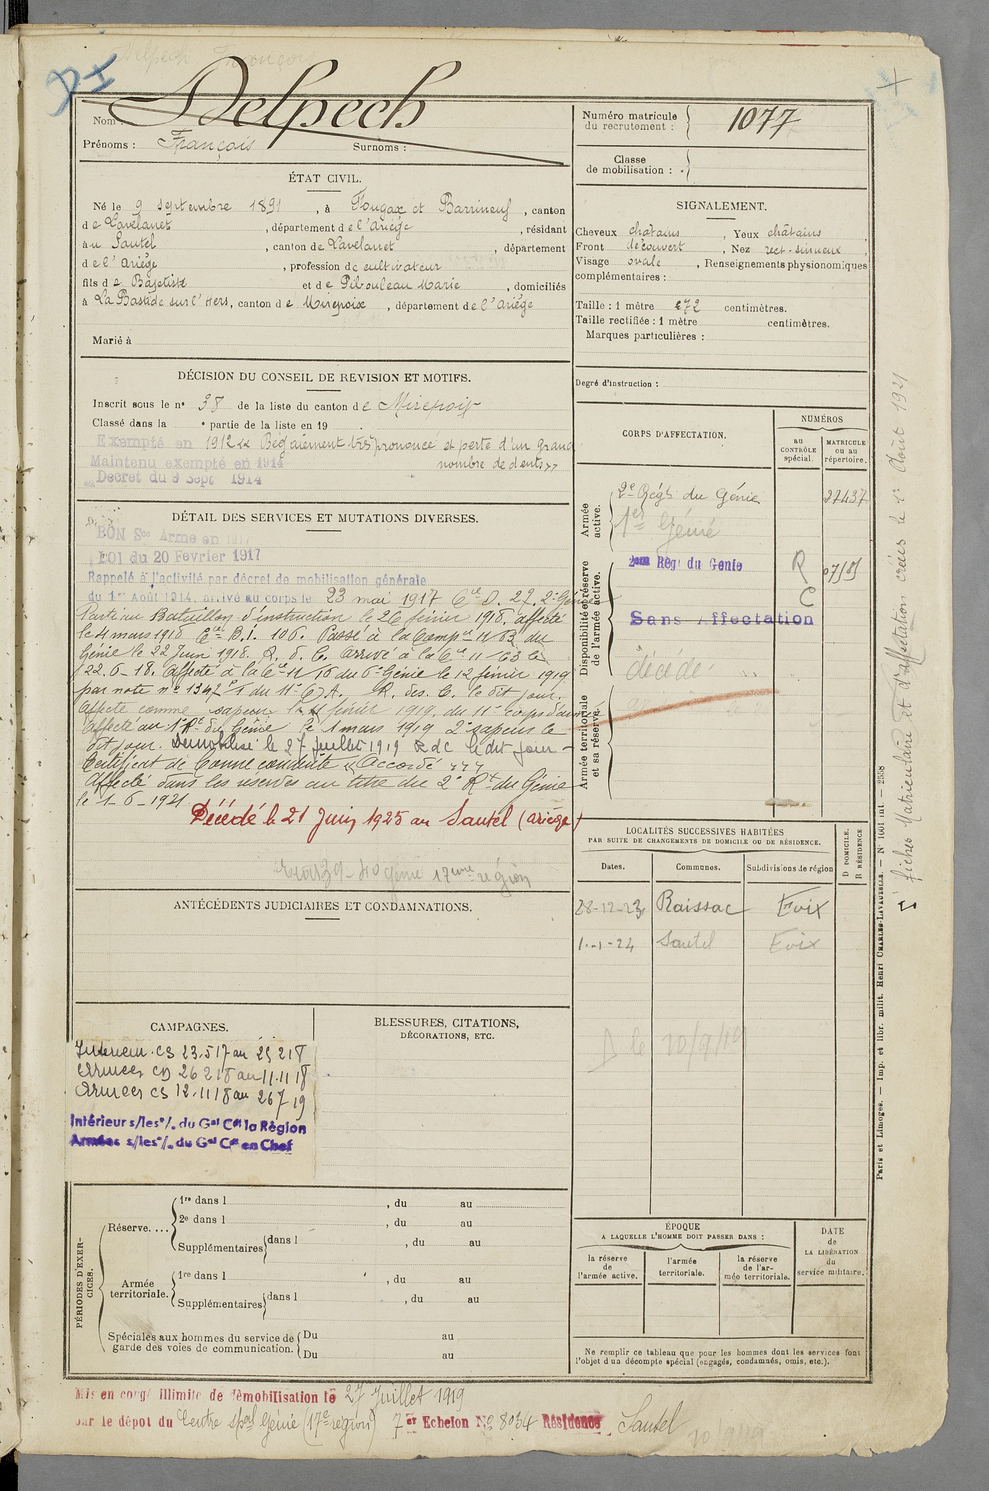 Delpech
Nom :
Prénoms : François Surnoms :
ÉTAT CIVIL.
Né le 9 septembre 1891, à Fougax et Barrineuf, canton
de Lavelanet, département de l'Ariège, résidant
à Sautel, canton de Lavelanet, département
de l'Ariège, profession de cultivateur
fils de Baptiste et de Pibouleau Marie, domiciliés
à La Bastide sur l'Hers, canton de Mirepoix, département de l'Ariège
Marié à
DÉCISION DU CONSEIL DE REVISION ET MOTIFS.
Inscrit sous le n° 38 de la liste du canton de Mirepoix
Classé dans la e partie de la liste en 19 .
Exempté en 1912 « Bégaiement très prononcé et perte d'un grand
nombre de dents »
Maintenu exempté en 1914
Décret du 9 Sept 1914
DÉTAIL DES SERVICES ET MUTATIONS DIVERSES.
BON Sce Armé en 1917
LOI du 20 Février 1917
Rappelé à l'activité par décret de mobilisation générale
du 1er Août 1914, arrivé au corps le 23 mai 1917 Cie D. 27. 2e Génie
Parti au Bataillon d'instruction le 26 février 1918, affecté
le 4 mars 1918 Cie B.I. 106. Passé à la Compie 11/63 du
Génie le 22 Juin 1918. R. d. C. arrivé à la Cie 11/63 le
22.6.18. Affecté à la Cie 11/16 du 6e Génie le 12 février 1919
par note n° 1342 du 11e C.A. R. des. C. le dit jour.
Affecté comme sapeur le février 1919, du 11e corps d'armée
Affecté au 1er Rt du Génie le 1 mars 1919 2e sapeur le
dit jour. Démobilisé le 27 Juillet 1919 R d C le dit jour -
Certificat de bonne conduite « Accordé »
Affecté dans les réserves au titre du 2e Rt du Génie
le 1-6-1921
Décédé le 21 Juin 1925 au Sautel (Ariège)
génie 17ème région
ANTÉCÉDENTS JUDICIAIRES ET CONDAMNATIONS.
CAMPAGNES.
Intérieur CS 23.5.17 au 25 2 18
Armées CD 26 2 18 au 11.11.18
Armées CS 12.11.18 au 26 7 19
Intérieur s/les o/. du Gal Ct la Région
Armées s/les o/. du Gal Ct en Chef
BLESSURES, CITATIONS,
DÉCORATIONS, ETC.
PÉRIODES D'EXERCICES.
Réserve....
1re dans l , du au
2e dans l , du au
Supplémentaires dans l , du au
Armée territoriale.
1re dans l , du au
Supplémentaires dans l , du au
Spéciales aux hommes du service de garde des voies de communication.
Du au
Du au
Numéro matricule du recrutement : 1077
Classe de mobilisation :
SIGNALEMENT.
Cheveux châtains, Yeux châtains,
Front découvert, Nez rect. sinueux,
Visage ovale, Renseignements physionomiques
complémentaires :
Taille : 1 mètre 72 centimètres.
Taille rectifiée : 1 mètre centimètres.
Marques particulières :
Degré d'instruction :
CORPS D'AFFECTATION.
NUMÉROS
au CONTRÔLE spécial.
MATRICULE ou au répertoire.
Armée active.
2e Régt du Génie 27437
1er Génie
Disponibilité et réserve de l'armée active.
2ème Régt du Génie R
C
Sans Affectation
décédé
Armée territoriale et sa réserve.
LOCALITÉS SUCCESSIVES HABITÉES
PAR SUITE DE CHANGEMENTS DE DOMICILE OU DE RÉSIDENCE.
Dates. Communes. Subdivisions de région
D DOMICILE. R RÉSIDENCE
28-12-23 Raissac Foix
1-1-24 Sautel Foix
D le 10/9/19
ÉPOQUE
A LAQUELLE L'HOMME DOIT PASSER DANS :
la réserve de l'armée active.
l'armée territoriale.
la réserve de l'armée territoriale.
DATE de LA LIBÉRATION du service militaire.
Ne remplir ce tableau que pour les hommes dont les services font
l'objet d'un décompte spécial (engagés, condamnés, omis, etc.).
Fiches Matriculaire et d'affectation créées le Août 1921
Paris et Limoges. — Imp. et libr. milit. Henri CHARLES-LAVAUZELLE. — N° 1601 int. — 2558
Mis en congé illimité de démobilisation le 27 Juillet 1919
par le dépôt du Centre spal Génie (17e région) 7e Echelon N° 8034 Résidence Sautel
10/9/19